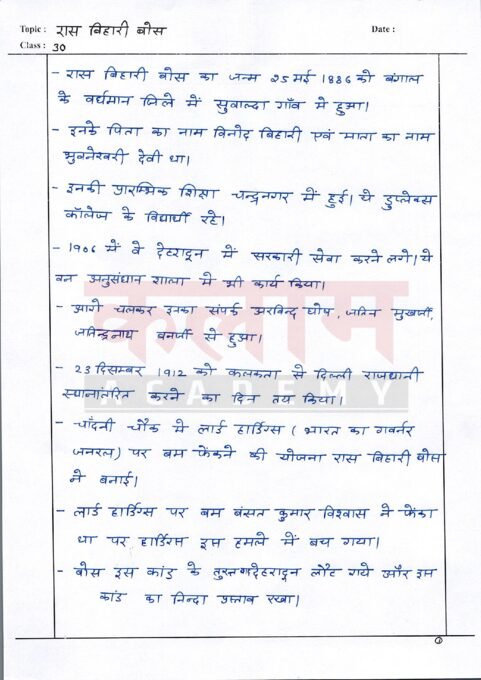 Topic : रास बिहारी बोस
Date :
Class : 30
- रास बिहारी बोस का जन्म 25 मई 1886 को बंगाल
के वर्धमान जिले में सुवाल्दा गाँव मे हुआ।
- इनके पिता का नाम विनोद बिहारी एवं माता का नाम
भुवनेश्वरी देवी था।
- इनकी प्रारम्भिक शिक्षा चन्द्रनगर में हुई। ये डुप्लेक्स
कॉलेज के विद्यार्थी रहे।
- 1906 में वे देहरादून में सरकारी सेवा करने लगे। ये
वन अनुसंधान शाला मे भी कार्य किया।
- आगे चलकर इनका संपर्क अरविन्द घोष, जतिन मुखर्जी,
जतिन्द्रनाथ बनर्जी से हुआ।
कलाम
ACADEMY
- 23 दिसम्बर 1912 को कलकता से दिल्ली राजधानी
स्थानांतरित करने का दिन तय किया।
- चाँदनी चौक मे लार्ड हार्डिंग्स ( भारत का गवर्नर
जनरल) पर बम फेंकने की योजना रास बिहारी बोस
ने बनाई।
- लार्ड हार्डिंग्स पर बम बंसत कुमार विश्वास ने फेंका
था पर हार्डिंग्स इस हमले में बच गया।
- बोस इस कांड के तुरन्त देहरादून लौट गये और इस
कांड का निन्दा प्रस्ताव रखा।
1